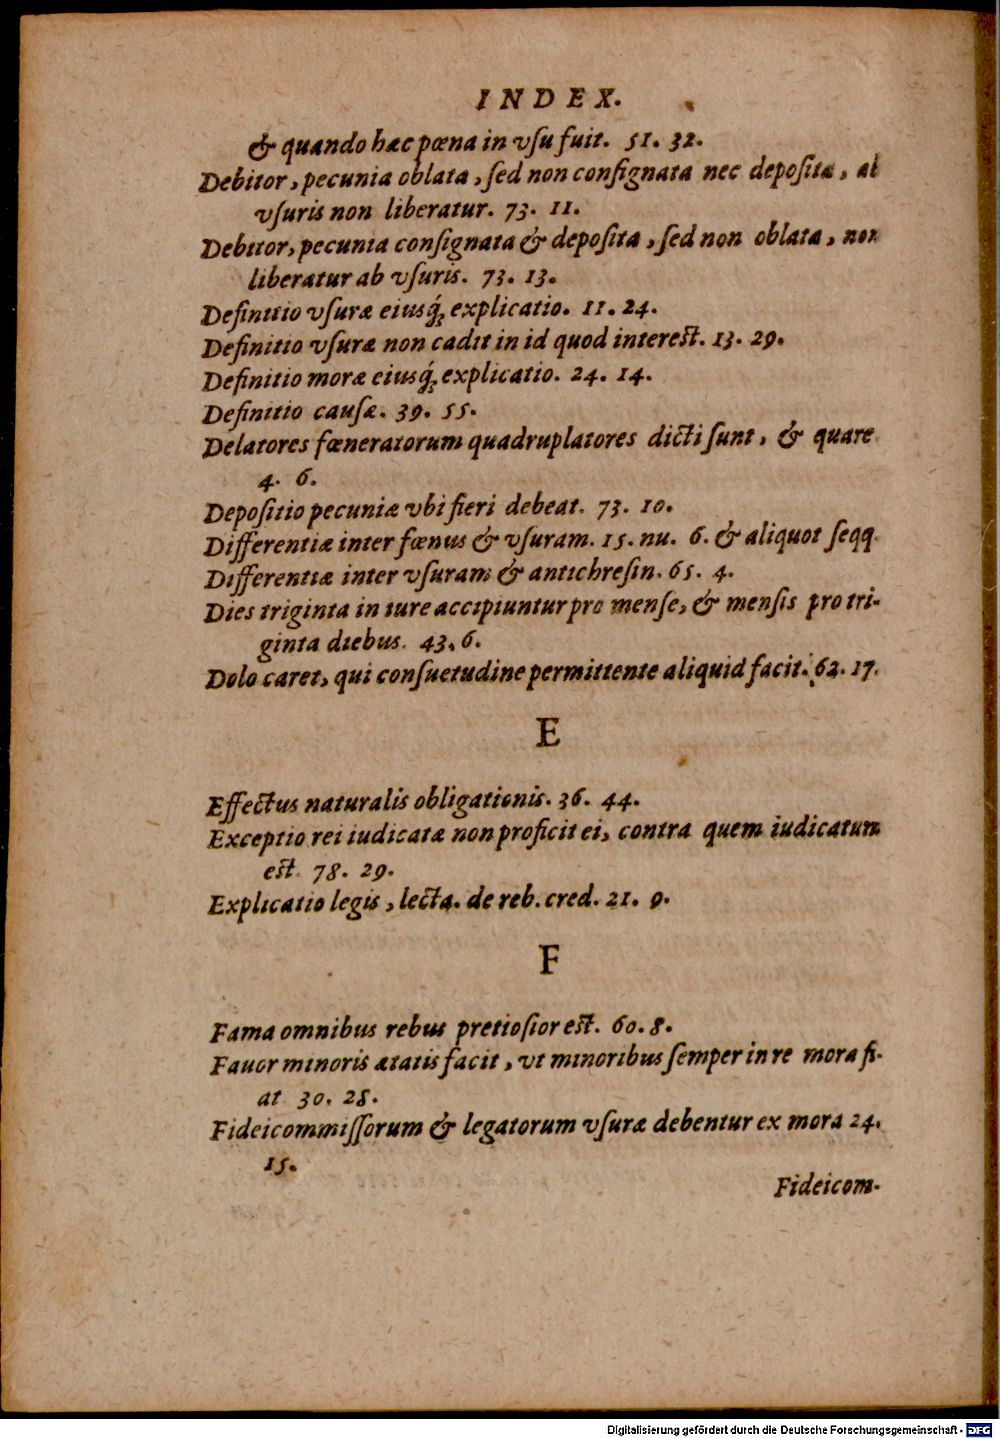 INDEX.
& quando hæc pœna in vſu fuit. 51. 32.
Debitor, pecunia oblata, ſed non conſignata nec depoſita, ab
vſuris non liberatur. 73. 11.
Debitor, pecunia conſignata & depoſita, ſed non oblata, non
liberatur ab vſuris. 73. 13.
Definitio vſuræ eiusq́; explicatio. 11. 24.
Definitio vſuræ non cadit in id quod intereſt. 13. 29.
Definitio moræ eiusq́; explicatio. 24. 14.
Definitio cauſæ. 39. 55.
Delatores fœneratorum quadruplatores dicti ſunt, & quare
4. 6.
Depoſitio pecuniæ vbi fieri debeat. 73. 10.
Differentiæ inter fœnus & vſuram. 15. nu. 6. & aliquot ſeqq.
Differentiæ inter vſuram & antichreſin. 65. 4.
Dies triginta in iure accipiuntur pro menſe, & menſis pro tri-
ginta diebus. 43. 6.
Dolo caret, qui conſuetudine permittente aliquid facit. 62. 17.
E
Effectus naturalis obligationis. 36. 44.
Exceptio rei iudicatæ non proficit ei, contra quem iudicatum
eſt. 78. 29.
Explicatio legis, lecta. de reb. cred. 21. 9.
F
Fama omnibus rebus pretioſior eſt. 60. 8.
Fauor minoris ætatis facit, vt minoribus ſemper in re mora fi-
at 30. 28.
Fideicommiſſorum & legatorum vſuræ debentur ex mora 24.
15.
Fideicom-
Digitalisierung gefördert durch die Deutsche Forschungsgemeinschaft - DFG